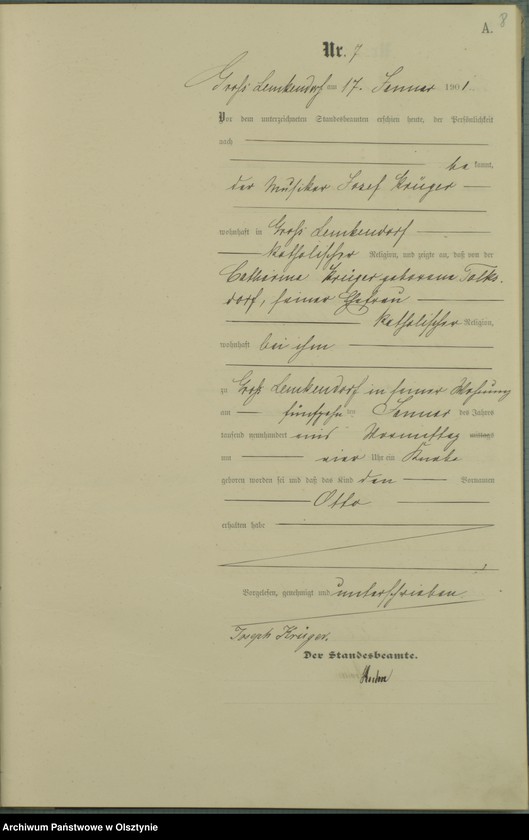 8
A.
Nr. 7
Groß Lemkendorf am 17. Januar 1901.
Vor dem unterzeichneten Standesbeamten erschien heute, der Persönlichkeit
nach
be kannt,
der Musiker Josef Krüger
wohnhaft in Groß Lemkendorf
katholischer Religion, und zeigte an, daß von der
Catharina Krüger geborene Tolks-
dorf, seiner Ehefrau
katholischer Religion,
wohnhaft bei ihm
zu Groß Lemkendorf in seiner Wohnung
am fünfzehnten Januar des Jahres
tausend neunhundert eins Vormittag mittags
um vier Uhr ein Knabe
geboren worden sei und daß das Kind den Vornamen
Otto
erhalten habe
Vorgelesen, genehmigt und unterschrieben
Joseph Krüger.
Der Standesbeamte.
Archiwum Państwowe w Olsztynie